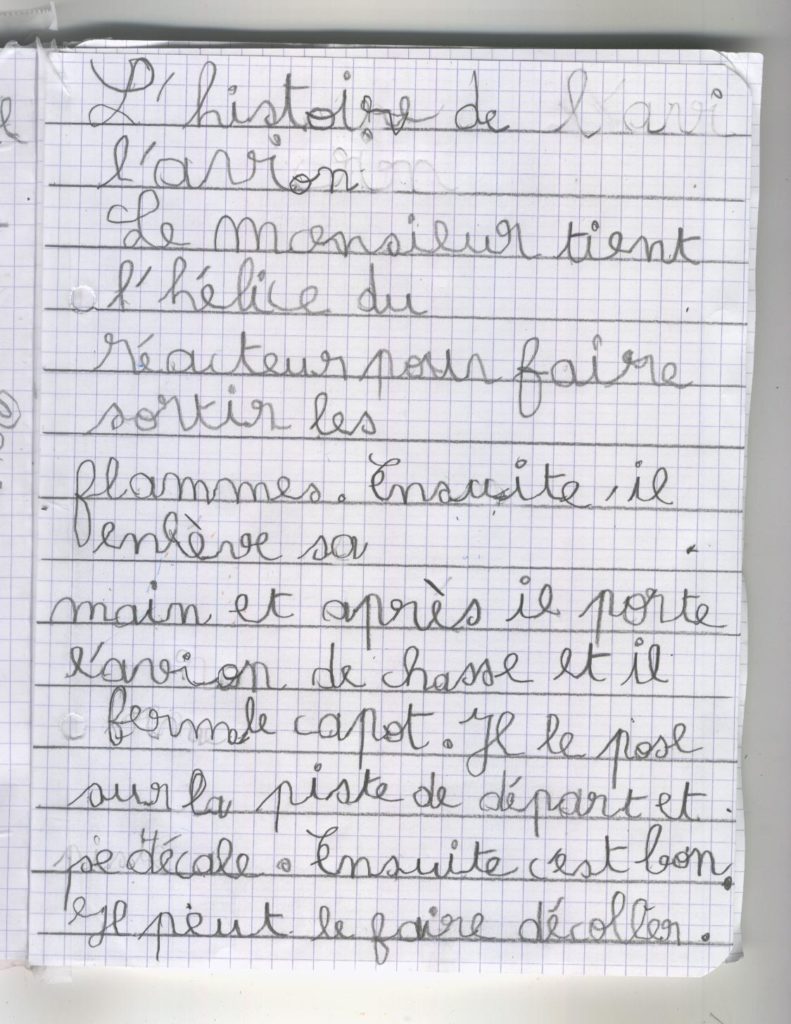 L'histoire de l'avi
l'avion
Le monsieur tient
l'hélice du
réacteur pour faire
sortir les
flammes. Ensuite, il
enlève sa
main et après il porte
l'avion de chasse et il
ferm le capot. Il le pose
sur la piste de départ et
se décale. Ensuite c'est bon.
Il peut le faire décoller.